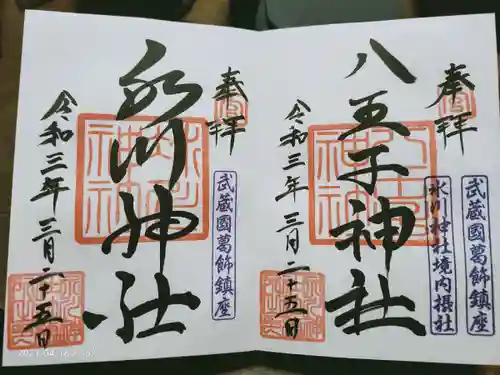 奉拝
八王子神社
武蔵國葛飾鎮座
氷川神社境内摂社
令和三年三月二十五日
奉拝
氷川神社
武蔵國葛飾鎮座
令和三年三月二十五日